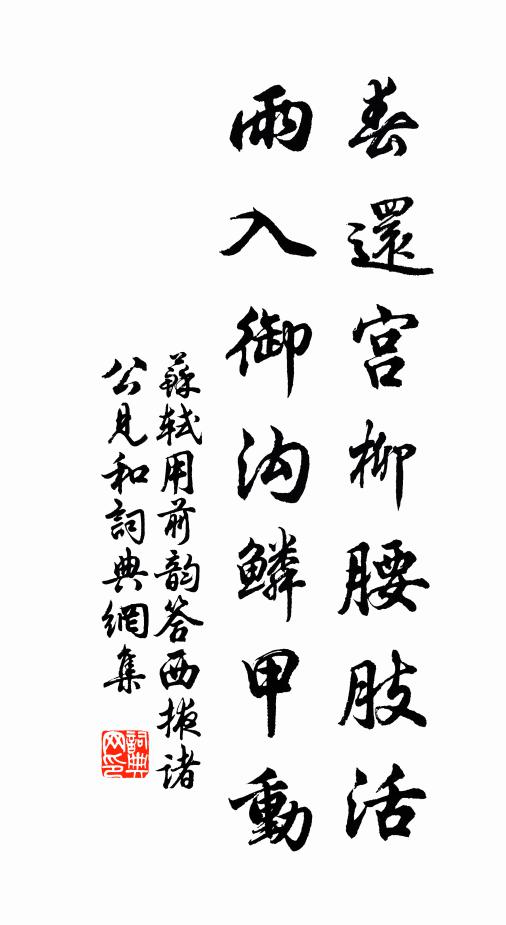 春還宮柳腰肢活
雨入御沟鱗甲動
蘇軾用前韵答西掖諸
公見和詞典網集
詞典
网印